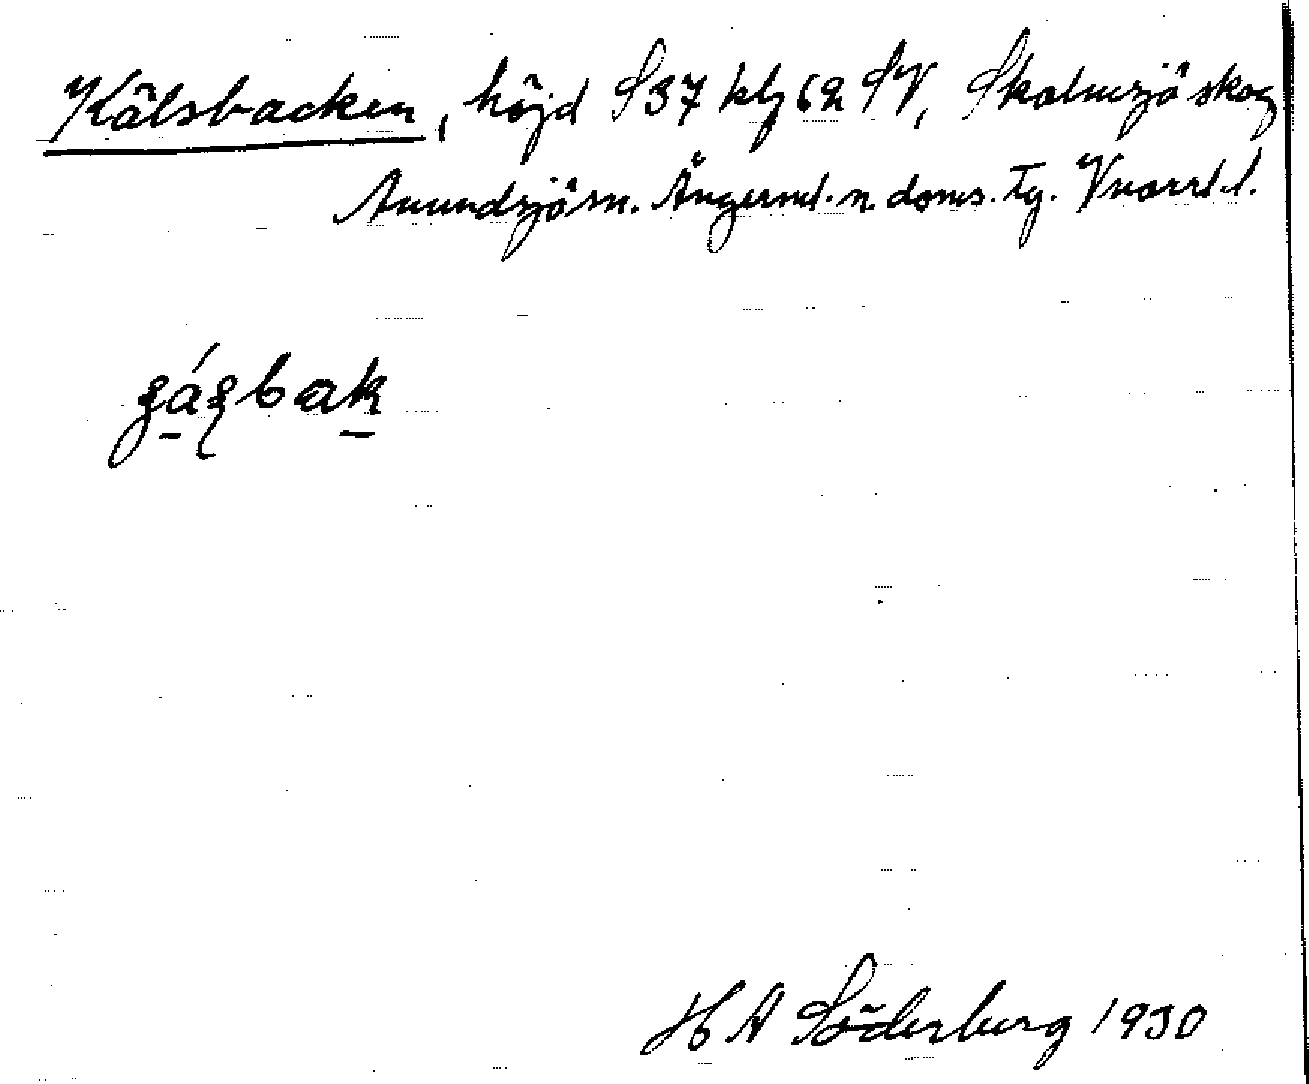 Kälsbacken, höjd S37 klj 62 SV, Skalmsjö skog
Anundsjö sn. Ångerml. n. doms. Tg. Vnorrl. l.
H A Söderberg 1930